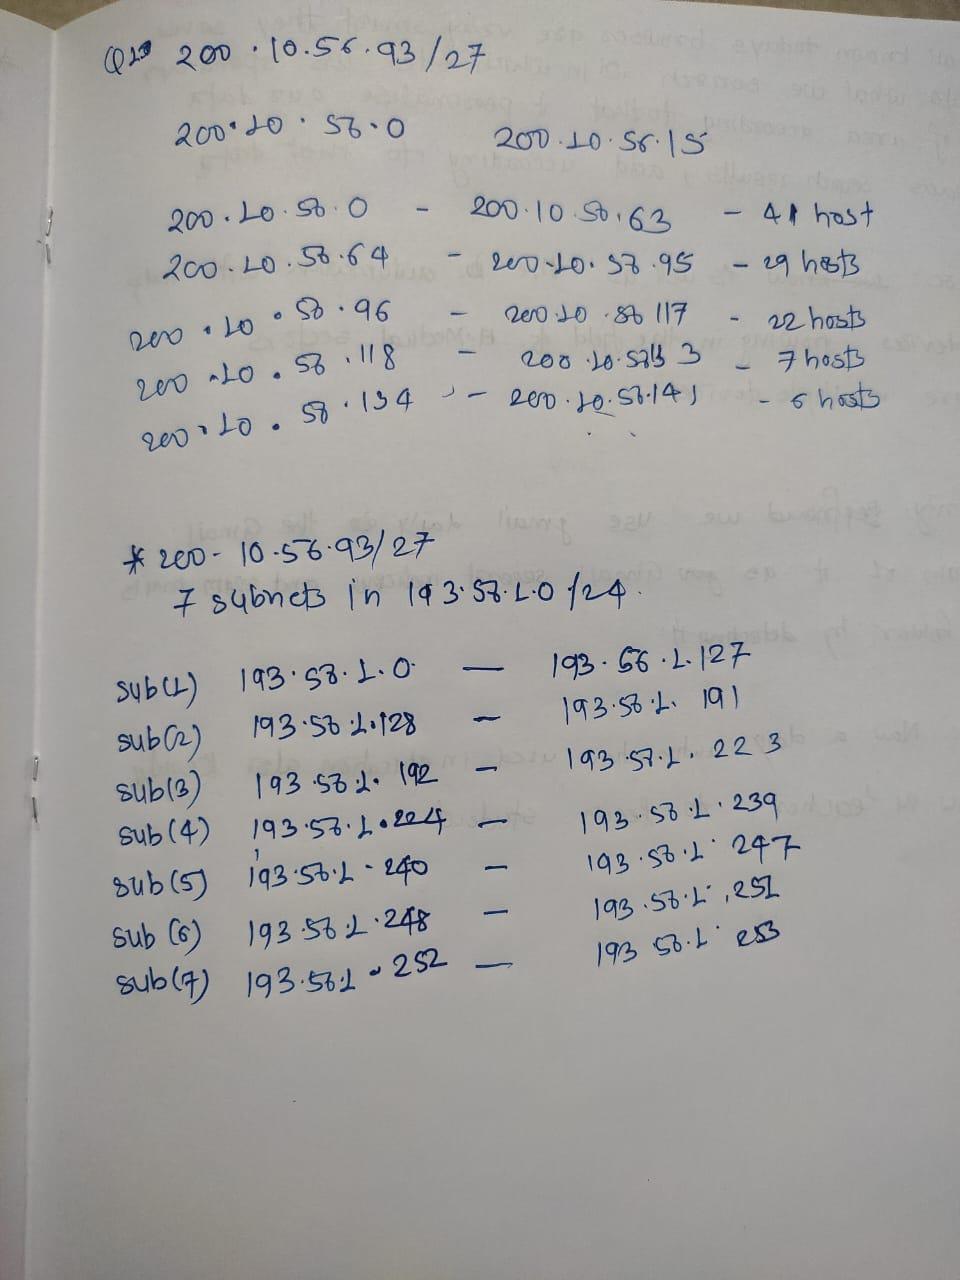 Q1) 200.10.56.93/27
200.10.56.0 200.10.56.15
200.10.56.0 - 200.10.56.63 - 41 host
200.10.56.64 - 200.10.56.95 - 29 hosts
200.10.56.96 - 200.10.56 117 - 22 hosts
200.10.56.118 - 7 hosts
200.10.56.134 - 200.10.56.141 - 6 hosts
* 200-10.56.93/27
7 subnets in 193.56.1.0 /24.
sub(1) 193.56.1.0 — 193.56.1.127
sub(2) 193.56.1.128 — 193.56.1.191
sub(3) 193.56.1.192 — 193.56.1.223
sub(4) 193.56.1.224 — 193.56.1.239
sub(5) 193.56.1-240 — 193.56.1.247
sub (6) 193.56.1.248 — 193.56.1.251
sub(7) 193.56.1.252 — 193 56.1.253